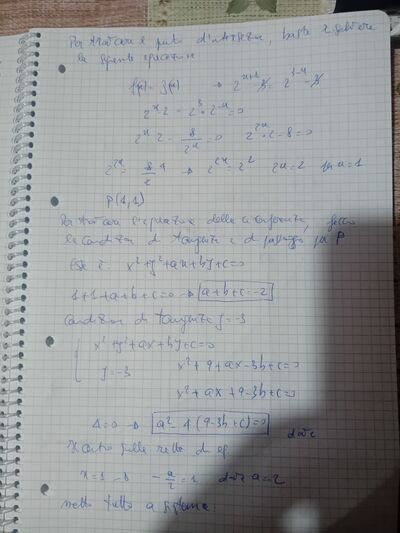 Per trovare i punti d'intersezione, basta risolvere
la seguente equazione
f(x) = g(x) → 2^{x+1} - 3 = 2^{3-x} - 3
2^x · 2 - 2^3 · 2^{-x} = 0
2^x · 2 - 8/2^x = 0    2^{2x} · 2 - 8 = 0
2^{2x} = 8/2 4 → 2^{2x} = 2^2    2x = 2 per x = 1
P(1,1)
Per trovare l'equazione della circonferenza, faccio
le condizioni di tangente e di passaggio per P
x² + y² + ax + by + c = 0
1 + 1 + a + b + c = 0 → a + b + c = -2
condizione di tangente y = -3
x² + y² + ax + by + c = 0
y = -3
x² + 9 + ax - 3b + c = 0
x² + ax + 9 - 3b + c = 0
Δ = 0 → a² - 4 · (9 - 3b + c) = 0
Centro sulla retta di eq
x = 1 → -a/2 = 1    a = 2
metto tutto a sistema: